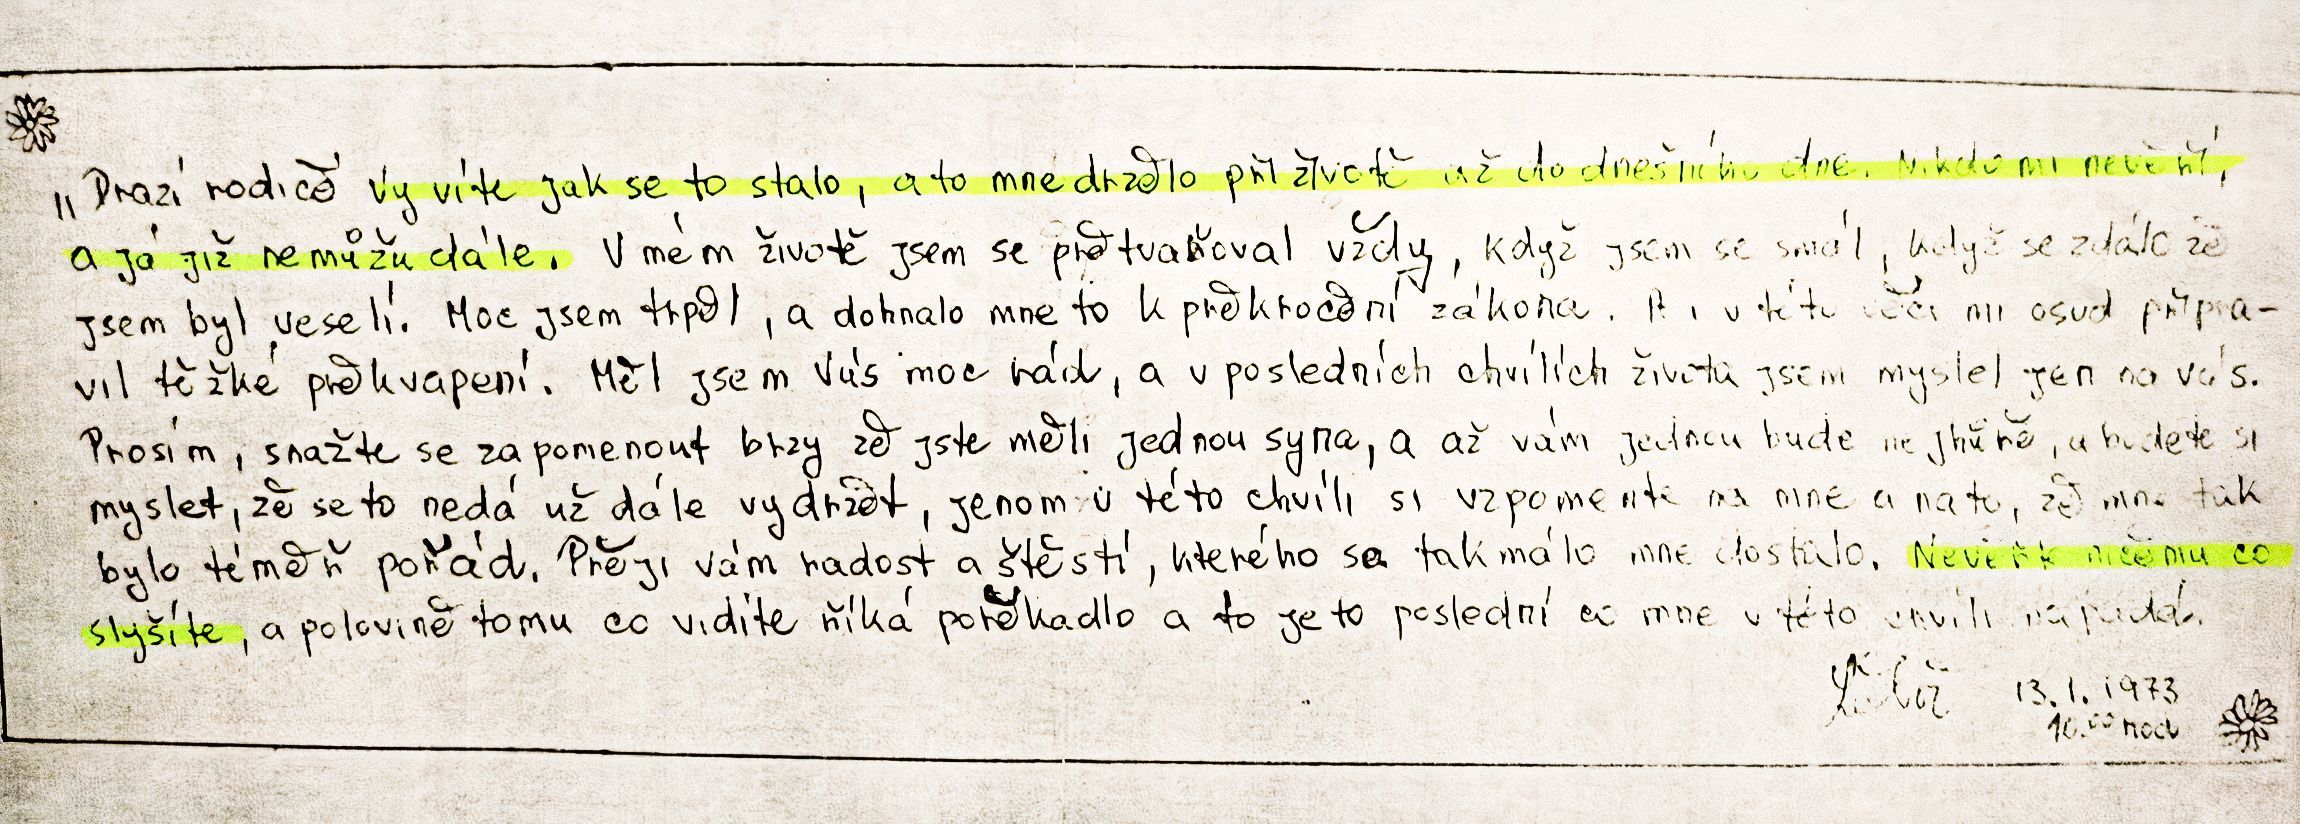 „Drazí rodičé Vy víte jak se to stalo, a to mne drželo při životě až do dnešního dne. Nikdo mi nevěří,
a já již nemůžu dále. V mém životě jsem se přetvařoval vždy, když jsem se smál, když se zdálo že
jsem byl veselí. Moc jsem trpěl, a dohnalo mne to k překročení zákona. A i v této věci mi osud připra-
vil těžké překvapení. Měl jsem Vás moc rád, a v posledních chvílích života jsem myslel jen na vás.
Prosím, snažte se zapomenout brzy že jste měli jednou syna, a až vám jednou bude nejhůře, a budete si
myslet, že se to nedá už dále vydržet, jenom v této chvíli si vzpomente na mne a na to, že mne tak
bylo téměř pořád. Přeji vám radost a štěstí, kterého se tak málo mne dostalo. Nevěřte ničemu co
slyšíte, a polovině tomu co vidíte říká pořěkadlo a to je to poslední co mne v této chvíli napadá.
13.1.1973
10.00 hod